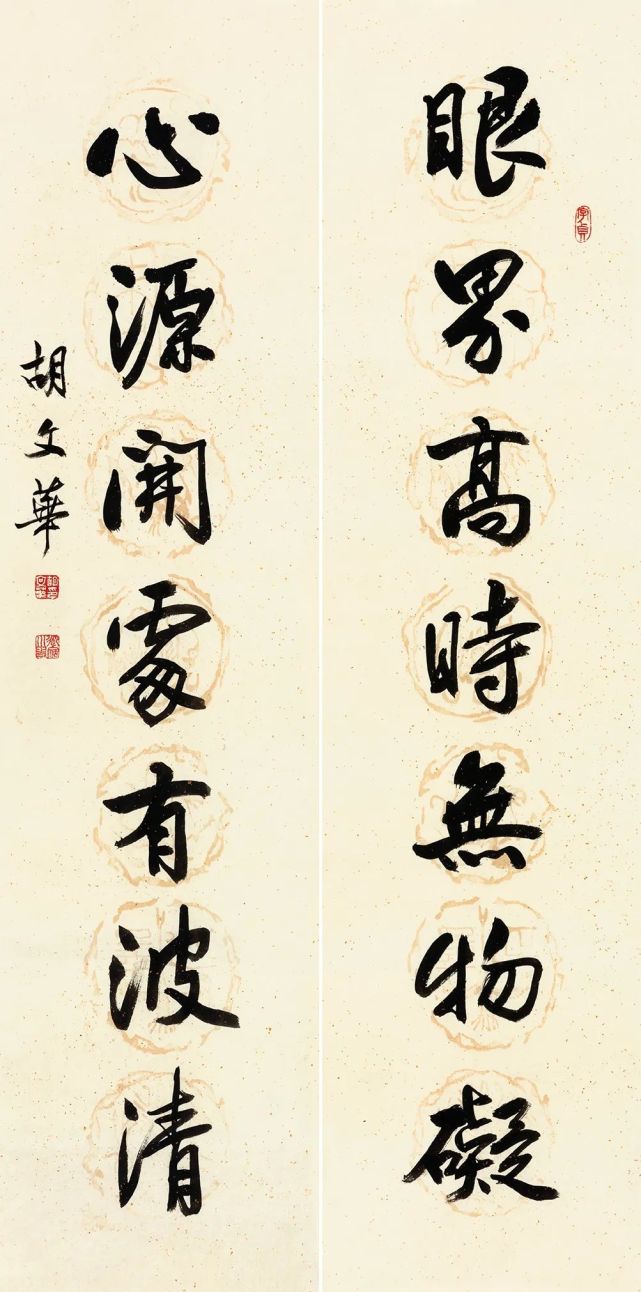 眼界高時無物礙
心源開處有波清
胡文華